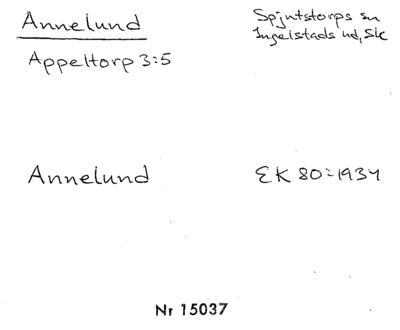 Annelund
Spjutstorps sn
Ingelstads hd, Sk
Appeltorp 3:5
Annelund
EK 80 = 1934
Nr 15037